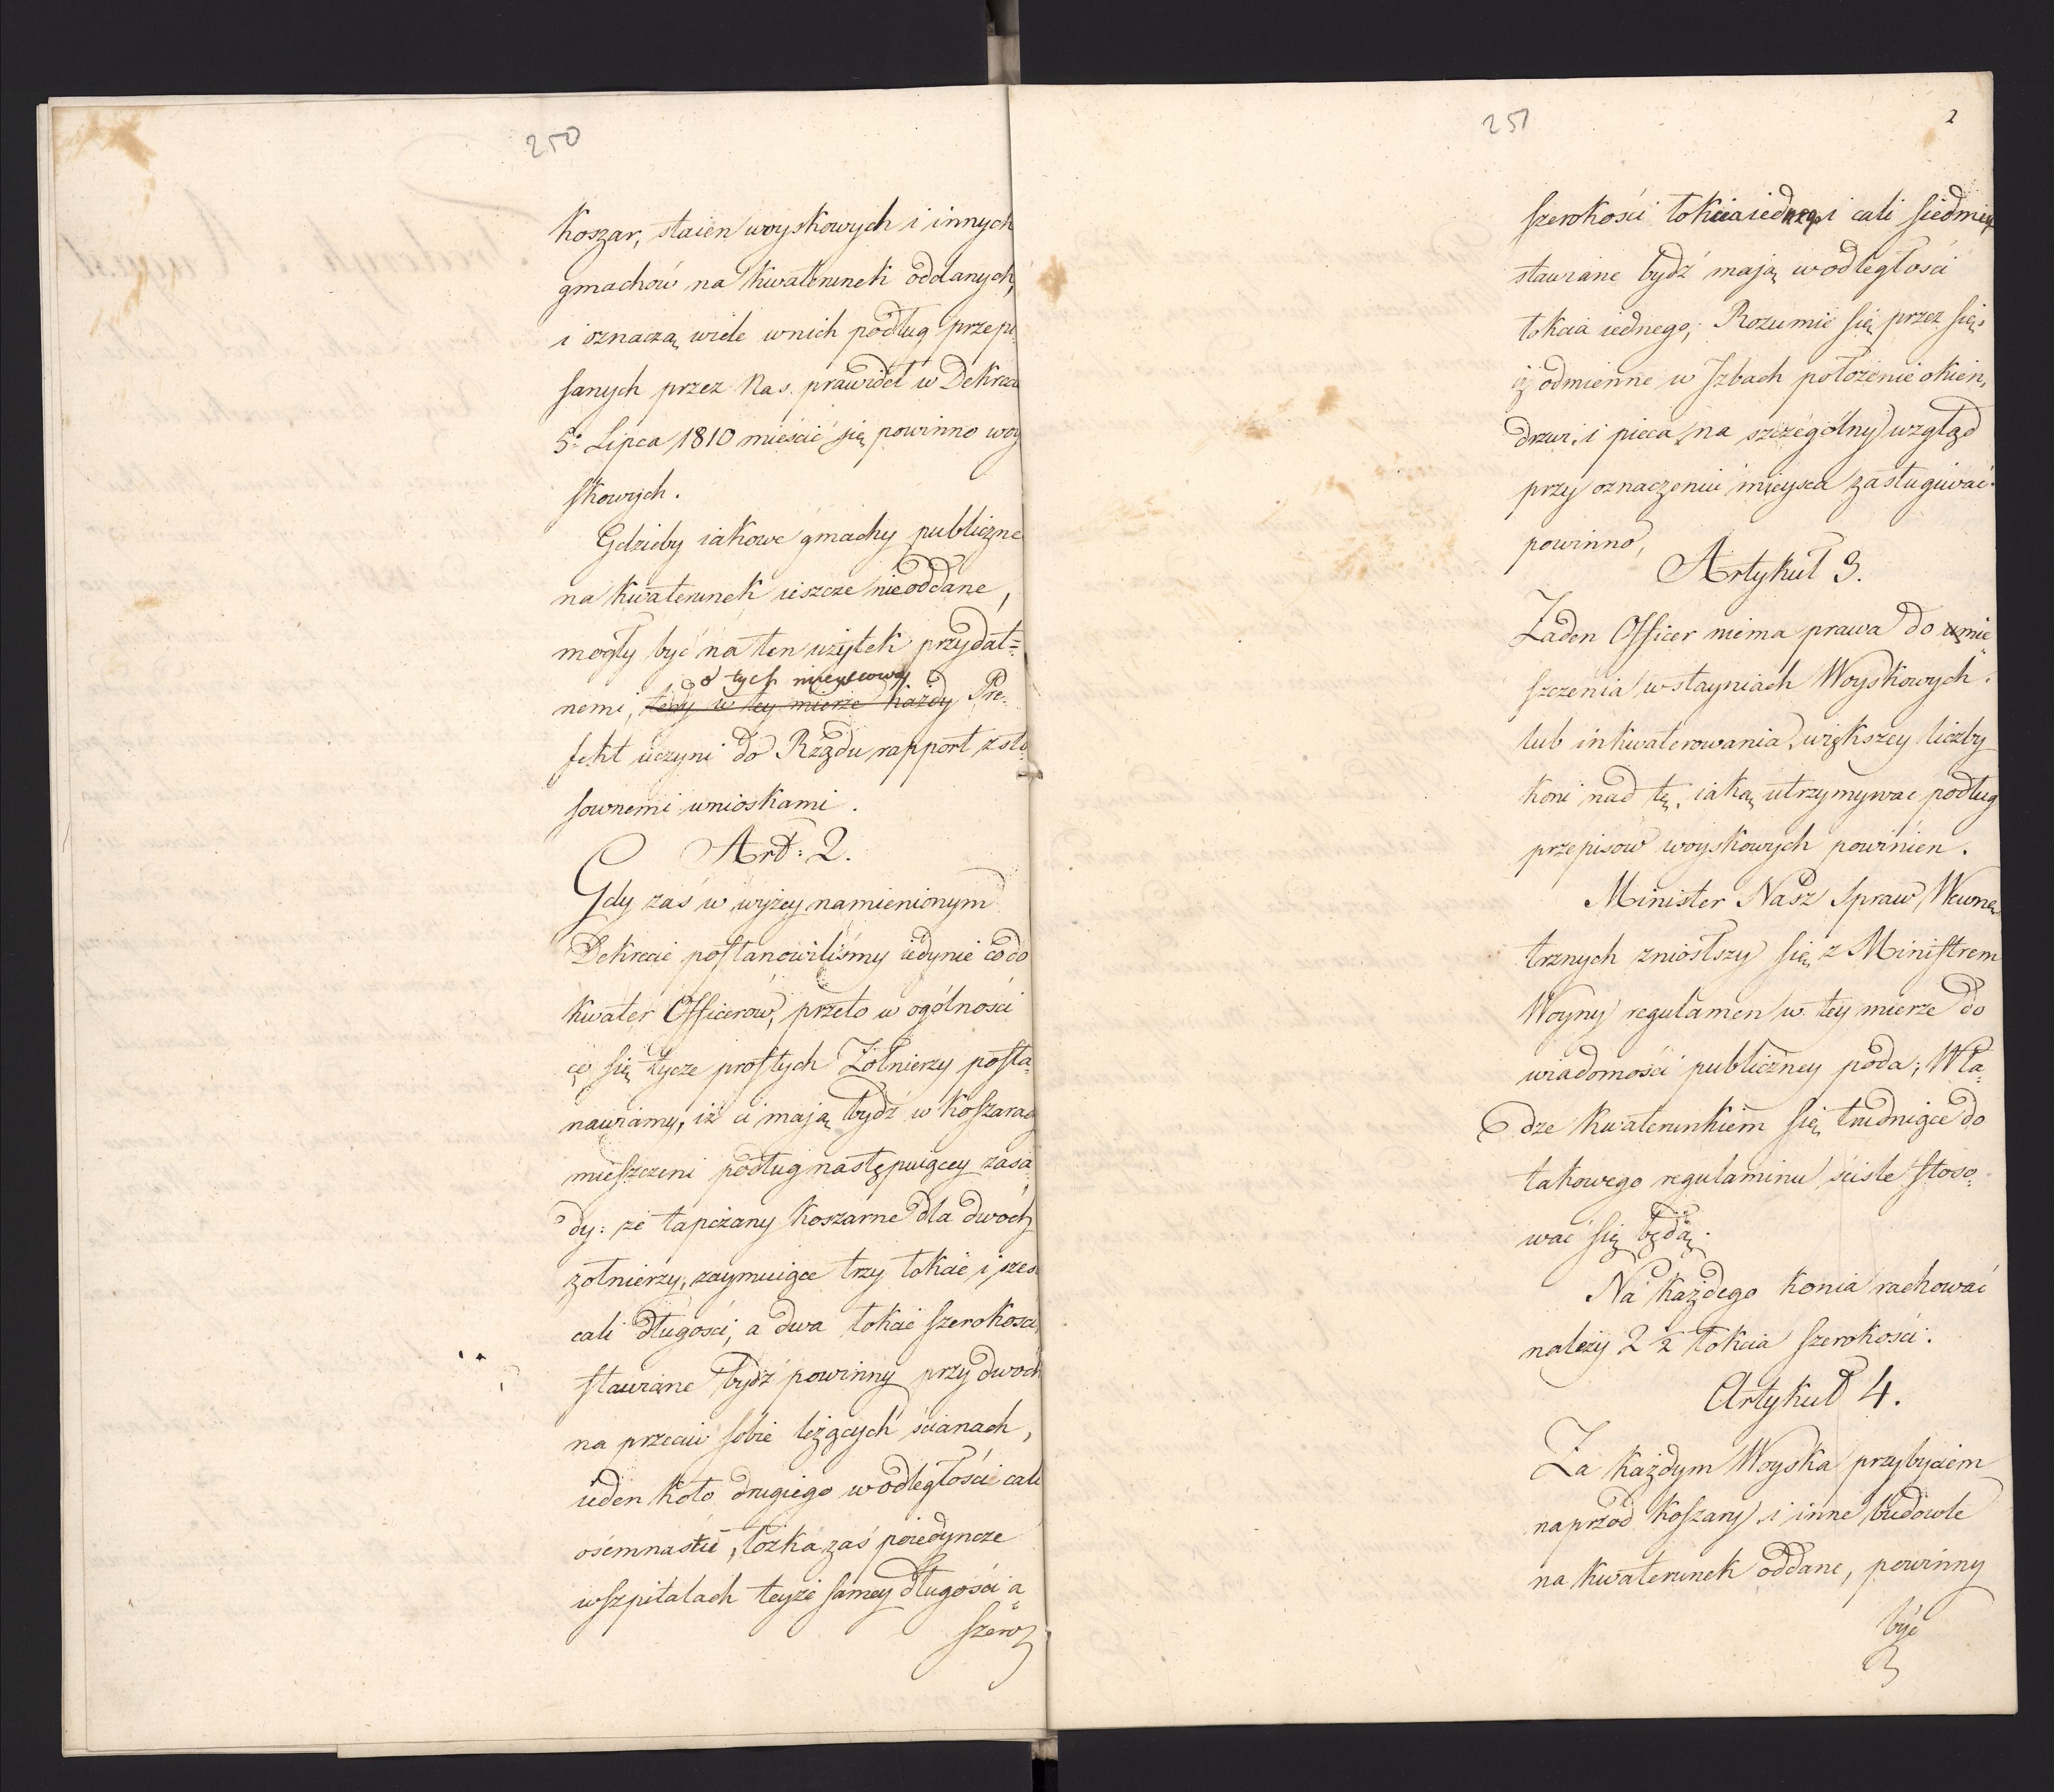 250
Koszar, staien woyskowych i innych
gmachów na kwaterunek oddanych,
i oznaczą wiele w nich podług przepi
sanych przez Nas prawideł w Dekrecie
5º Lipca 1810 mieścić się powinno woy
skowych.
Gdzieby iakowe gmachy publiczne
na kwaterunek ieszcze nieoddane,
mogły być na ten użytek przydat=
o tych mieyscowy
nemi, tedy w tey mierze każdy Pre-
fekt uczyni do Rządu rapport z sto
sownemi wnioskami.
Art: 2.
Gdy zaś w wyżey namienionym
Dekrecie postanowiliśmy iedynie co do
kwater Officerów, przeto w ogólności
co się tycze prostych Żołnierzy posta=
nawiamy, iż ci mają bydź w koszarach
mieszczeni podług następuiącey zasa=
dy: że tapczany koszarne dla dwóch
żołnierzy, zaymuiące trzy łokcie i sześć
cali długości, a dwa łokcie szerokości,
stawiane bydź powinny przy dwóch
na przeciw sobie leżących ścianach,
ieden koło drugiego w odległości cali
ośmnaście, łóżka zaś poiedyncze
w szpitalach teyże samey długości a
szero
251
2
szerokości łokcia iednego i cali siedmiu
stawiane bydź mają w odległości
łokcia iednego; Rozumie się przez się,
iż odmienne w Izbach położenie okien,
drzwi, i pieca, na szczególny wzgląd
przy oznaczeniu mieysca zasługiwać
powinno,
Artykuł 3.
Żaden Officer niema prawa do umie
szczenia w stayniach Woyskowych
lub inkwaterowania, większey liczby
koni nad tę, iaką utrzymywać podług
przepisów woyskowych powinien.
Minister Nasz Spraw Wewnę
trznych zniósłszy się z Ministrem
Woyny regulamen w tey mierze do
wiadomości publiczney poda; Wła=
dze kwaterunkiem się trudniące do
takowego regulaminu ściśle stoso=
wać się będą.
Na każdego konia rachować
należy 2 ½ łokcia szerokości.
Artykuł 4.
Za każdym Woyska przybyciem
naprzód koszary i inne budowle
na kwaterunek oddane, powinny
być